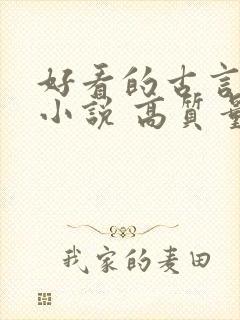 好看的古言
小説 高質量
我家的麦田